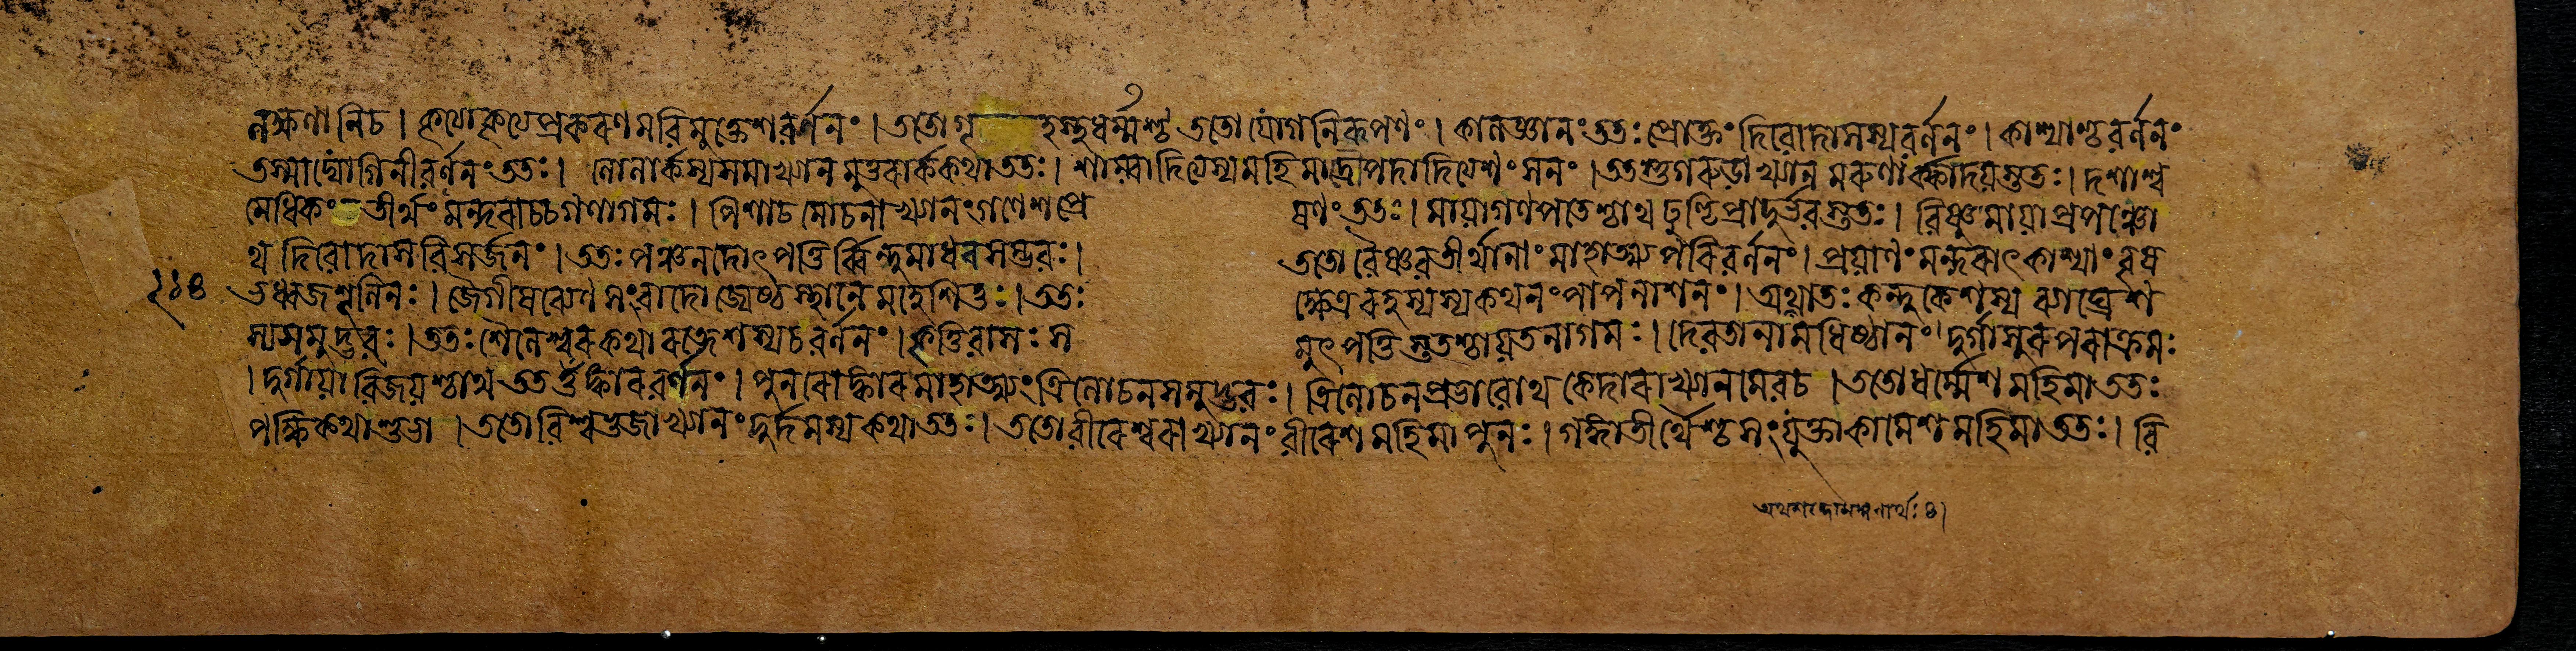 লক্ষণানিচ । কৃত্যাকৃত্যপ্রকরণমবিমুক্তেশবর্ণনং । ততোগৃ হস্থধর্ম্মশ্চ ততো যোগনিরূপণং । কালজ্ঞানংততঃ প্রোক্তং দিবোদাসস্যবর্ণনং । কাশ্যাশ্চবর্ণনং
তস্মাদ্যোগিনীবর্ণনংততঃ । লোলার্কস্যসমাখ্যানমুত্তরার্ককথাততঃ । শাম্বাদিত্যস্যমহিমাদ্রৌপদাদিত্যশংসনং । ততস্তুগরুড়াখ্যানমরুণার্কোদয়স্ততঃ । দশাশ্ব
মেধিকং তীর্থং মন্দরাচ্চগণাগমঃ । পিশাচমোচনাখ্যানংগণেশপ্রে ষণং ততঃ । মায়াগণপতেশ্চাথ ঢুণ্ঢিপ্রাদুর্ভবস্ততঃ । বিষ্ণুমায়াপ্রপঞ্চো
থ দিবোদাসবিসর্জনং । ততঃ পঞ্চনদোৎপত্তির্ব্বিন্দুমাধবসম্ভবঃ । ততো বৈষ্ণবতীর্থানাং মাহাত্ম্যপরিবর্ণনং । প্রয়াণং মন্দরাৎকাশ্যাং বৃষ
ভধ্বজশূলিনঃ । জৈগীষব্যেণ সংবাদো জ্যেষ্ঠস্থানে মহেশিতুঃ । ততঃ ক্ষেত্ররহস্যস্যকথনংপাপনাশনং । অথাতঃ কন্দুকেশস্য ব্যাঘ্রেশ
স্যসমুদ্ভবঃ । ততঃ শৈলেশ্বরকথারত্নেশস্যচবর্ণনং । কৃত্তিবাসঃ স মুৎপত্তিস্ততশ্চায়তনাগমঃ । দেবতানামধিষ্ঠানং । দুর্গাসুরপরাক্রমঃ
। দুর্গায়া বিজয়শ্চাথ ততওঁঙ্কারবর্ণনং । পুনরোঙ্কারমাহাত্ম্যংত্রিলোচনসমুদ্ভবঃ । ত্রিলোচনপ্রভাবোথ কেদারাখ্যানমেবচ । ততোধর্ম্মেশমহিমাততঃ
পক্ষিকথাশুভা । ততোবিশ্বভুজাখ্যানংদুর্দমস্যকথাততঃ । ততোবীরেশ্বরাখ্যানংবীরেশমহিমাপুনঃ । গঙ্গাতীর্থৈশ্চসংযুক্তাকামেশমহিমাততঃ । বি